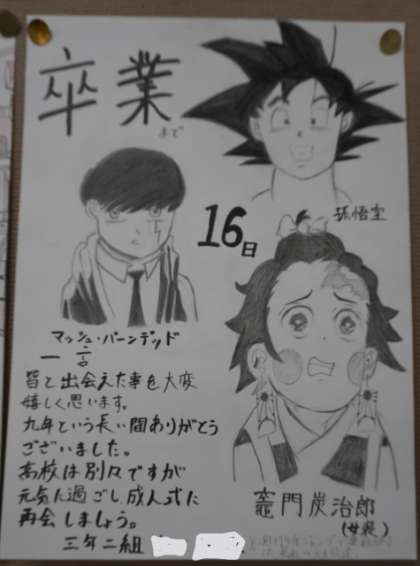 卒業
まで
孫悟空
16日
マッシュ・バーンデッド
一言
皆と出会えた事を大変
嬉しく思います。
九年という長い間ありがとう
ございました。
高校は別々ですが
元気に過ごし、成人式に
再会しましょう。
三年二組
竈門炭治郎
(女装)